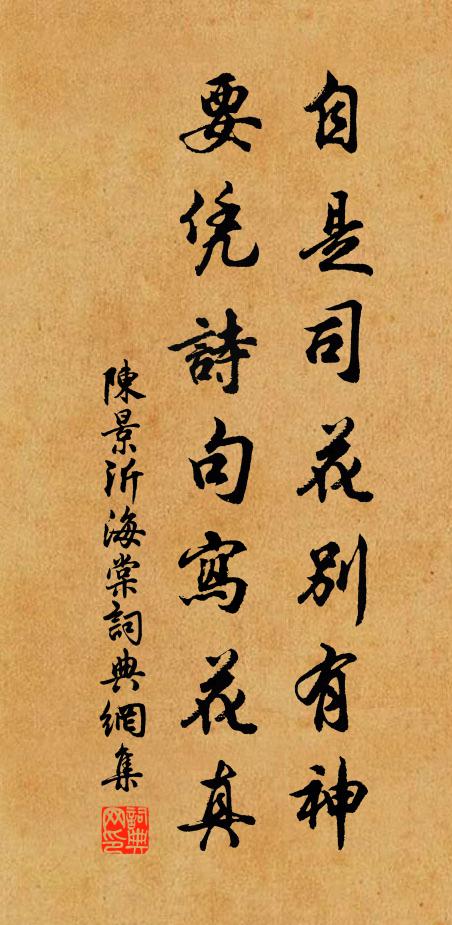 自是司花別有神
要凭詩句寫花真
陳景沂海棠詞典網集
詞典网印